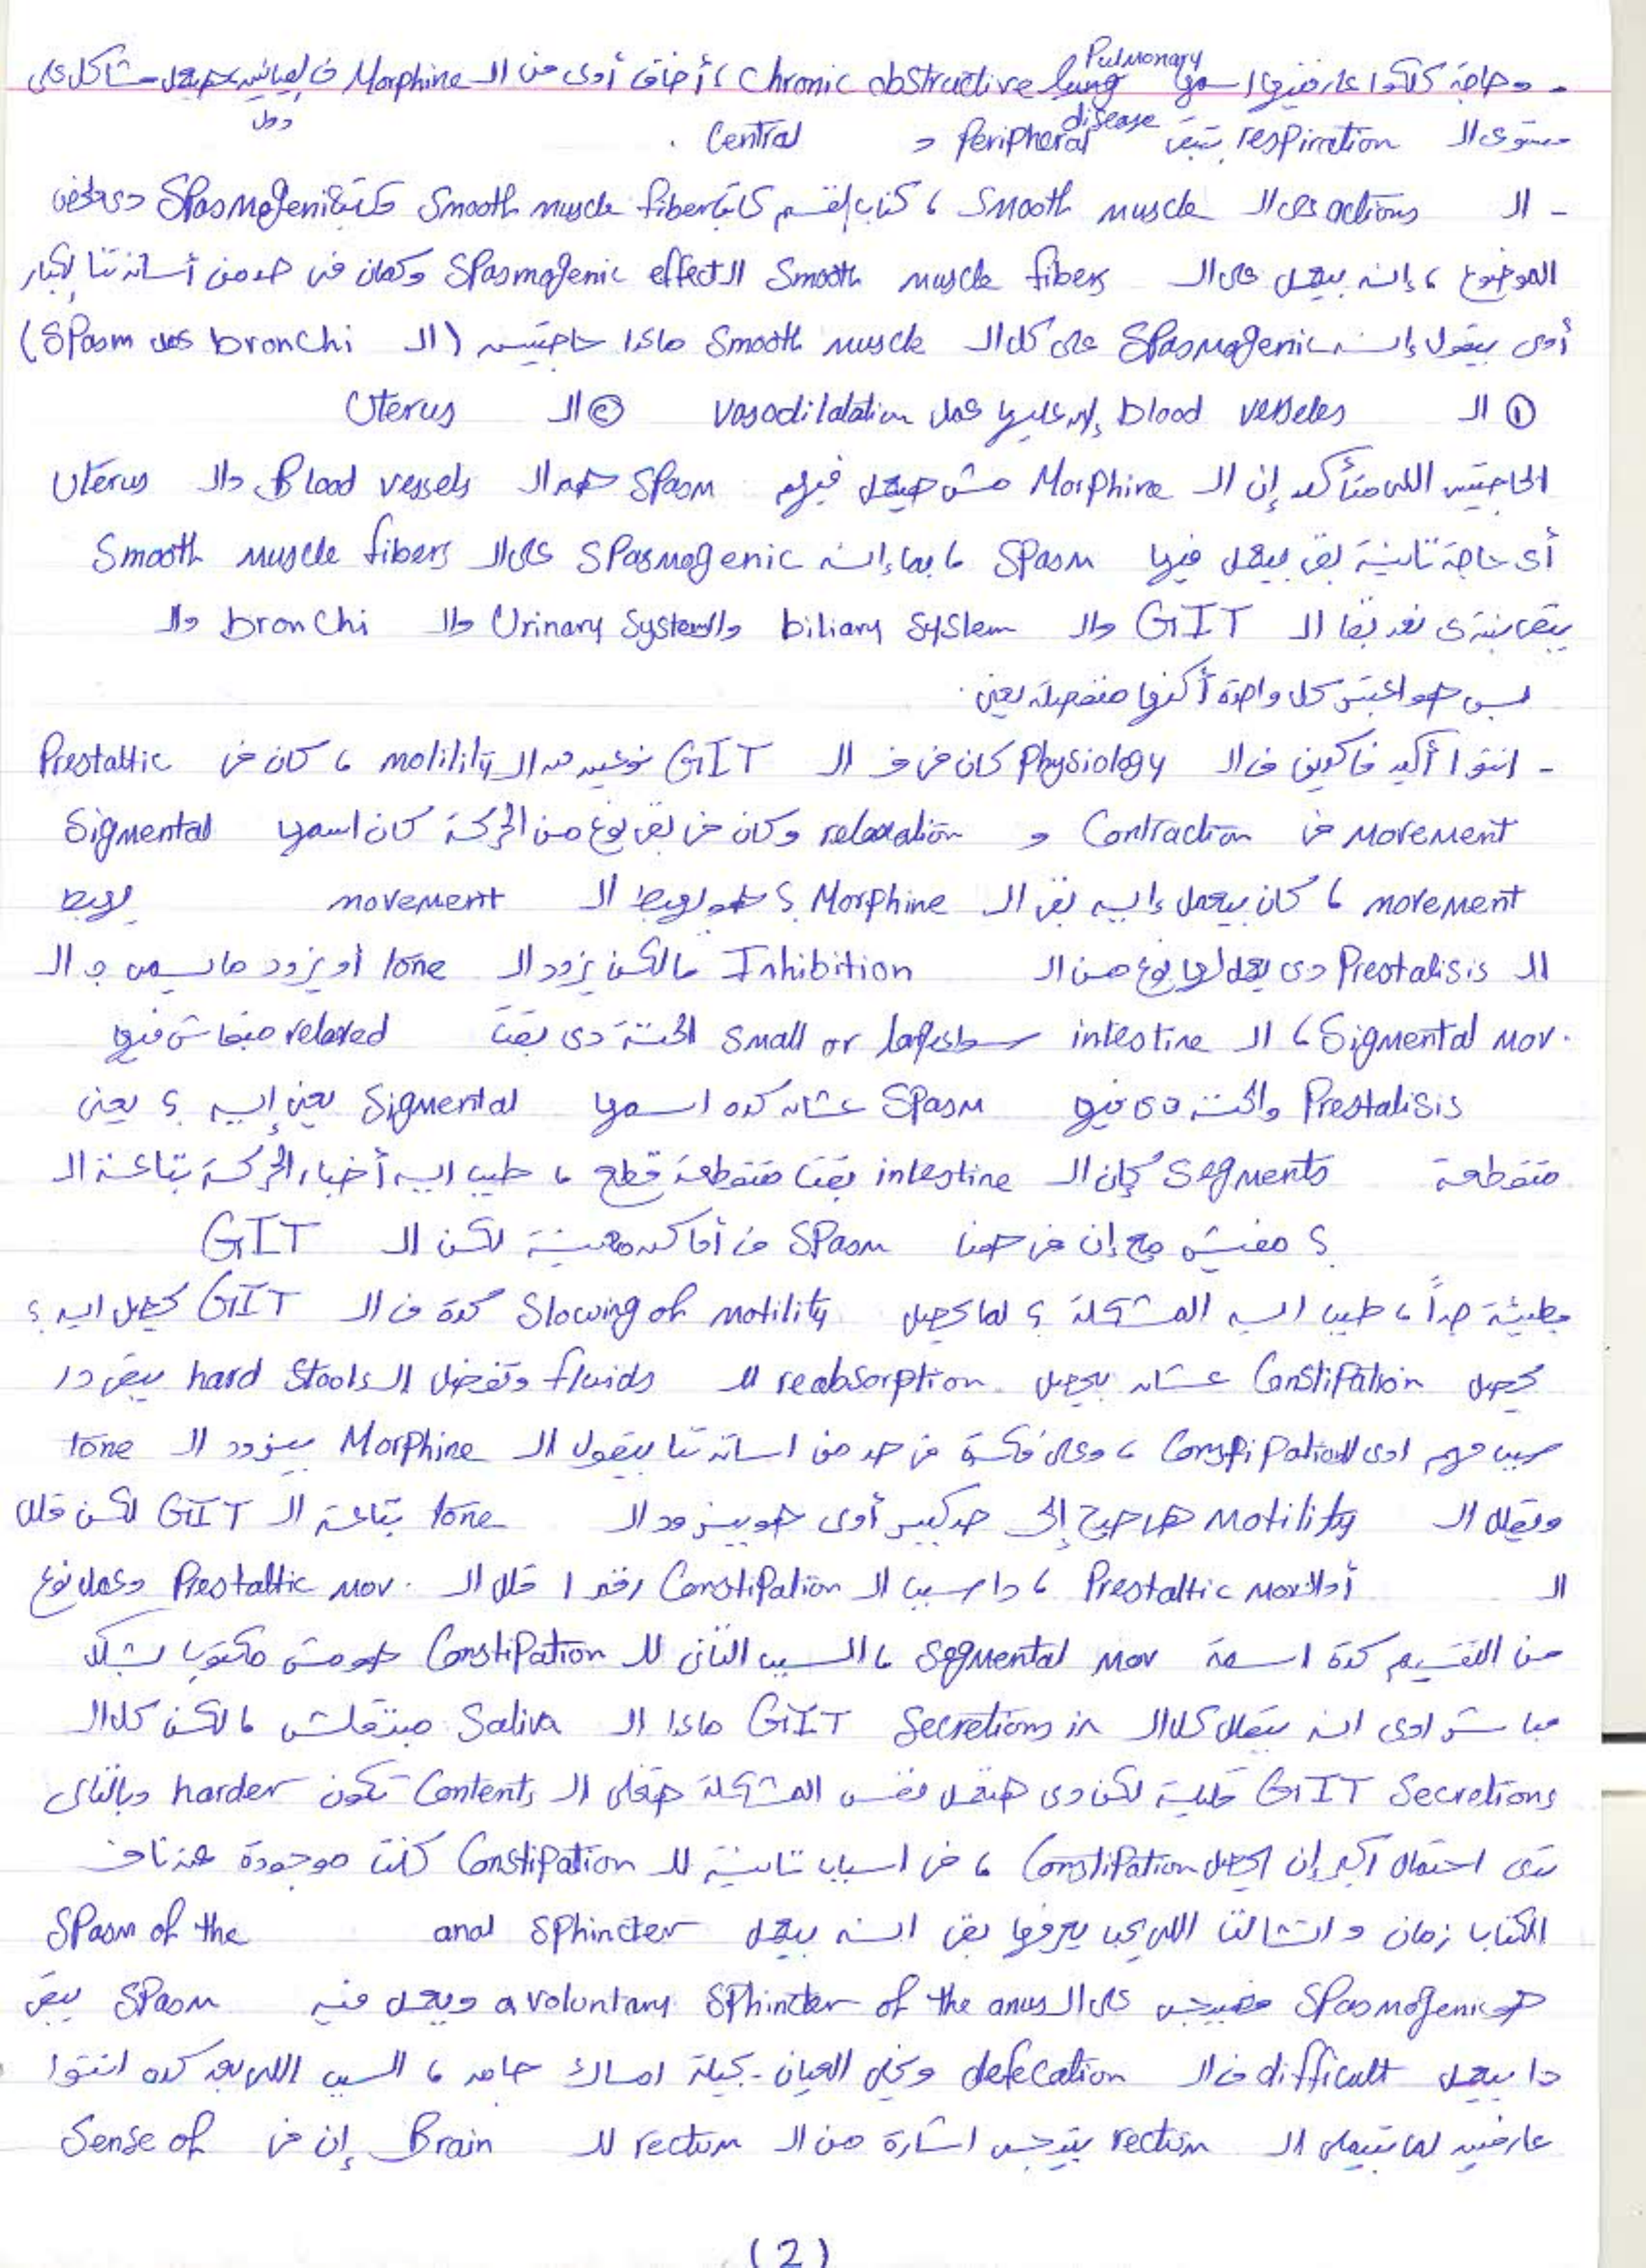 - وحاجة كلكوا عارفينها اسمها Chronic obstructive lung Pulmonary disease ، أخاف أوى من الـ Morphine فى العيانين دول هيعمل مشاكل على
مستوى الـ respiration تبقى Peripheral و Central .
- الـ actions على الـ Smooth muscle ، كتاب القسم كاتب Smooth muscle fibers Spasmogenic دى
الموضوع ، إنه بيعمل على الـ Smooth muscle fibers الـ Spasmogenic effect وكمان فى حد من أساتذتنا الكبار
أوى بيقول إنه Spasmogenic على كل الـ Smooth muscle ماعدا حاجتين (الـ bronchi عمل Spasm)
① الـ blood vesseles عليها عمل vasodilalation ② الـ Uterus
الحاجتين اللى متأكد إن الـ Morphine مش هيعمل فيهم Spasm هم الـ Blood vessels والـ Uterus
أى حاجة تانية بقى بيعمل فيها Spasm ، بما إنه Spasmogenic على الـ Smooth muscle fibers
يبقى نبتدى نعد بقا الـ GIT والـ biliary System والـ Urinary System والـ bronchi والـ
بس هو كل واحدة منفصلة يعنى .
- انتوا أكيد فاكرين فى الـ Physiology كان فى فى الـ GIT نوعين من الـ motility ، كان فى Prestaltic
movement فى Contraction و relaxation وكان فى بقى نوع من الحركة كان اسمها Sigmental
movement ، كان بيعمل إيه بقى الـ Morphine ؟ هو يهبط الـ movement يهبط
الـ Prestalisis دى يعمل لها نوع من الـ Inhibition ، لكن يزود الـ tone أو يزود ما يسمى بـ الـ
Sigmental mov. ، الـ intestine سواء small or large الحتة دى بقت relaxed مبقاش فيها
Prestalisis والحتة دى فيها Spasm عشان كده اسمها Sigmental يعنى إيه ؟ يعنى
متقطعة Segments كإن الـ intestine بقت متقطعة قطع ، طيب ايه أخبار الحركة بتاعة الـ
GIT ؟ مفيش مع إن فى هنا Spasm فى أماكن معينة لكن الـ
بطيئة جداً ، طيب ايه المشكلة ؟ لما يحصل Slowing of motility كدة فى الـ GIT يحصل ايه ؟
يحصل Constipation عشان بيحصل reabsorption للـ fluids وتفضل الـ hard Stools يبقى دا
سبب مهم اوى للـ Constipation ، وعلى فكرة فى حد من اساتذتنا بيقول الـ Morphine بيزود الـ tone
ويقلل الـ motility هو صح إلى حد كبير أوى هو بيزود الـ tone بتاعة الـ GIT لكن قلل
الـ Prestaltic mov ، دا سبب الـ Constipation رقم 1 قلل الـ Prestaltic mov. وعمل نوع
من التقسيم كدة اسمه Segmental mov ، السبب التانى للـ Constipation هو مش مكتوب بشكل
مباشر اوى انه بيقلل كل الـ Secretions in GIT ماعدا الـ Saliva مبتقلش ، لكن كل الـ
GIT Secretions قليلة لكن دى هتعمل نفس المشكلة هتخلى الـ Contents تكون harder وبالتالى
تدى احتمال أكبر إن يحصل Constipation ، فى اسباب تانية للـ Constipation كانت موجودة عندنا فى
الكتاب زمان والتالت اللى يجب يعرفها بقى انه بيعمل Spasm of the anal Sphincter
هو Spasmogenic فهييجى على الـ avoluntary Sphincter of the anus ويعمل فيه Spasm يبقى
دا بيعمل difficult فى الـ defecation ويخلى العيان يجيله امساك جامد ، السبب اللى بعد كده انتوا
عارفين لما بتتملى الـ rectum بتيجى اشارة من الـ rectum للـ Brain إن فى Sense of
(2)